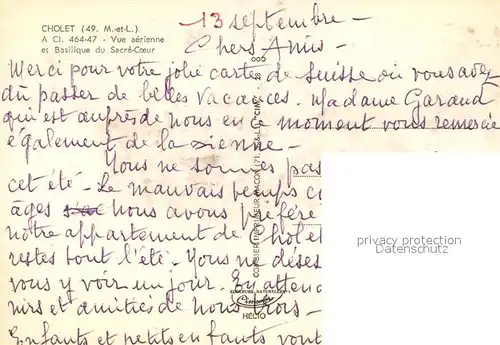 CHOLET (49. M.-et-L.)
A CI. 464-47 - Vue aérienne
et Basilique du Sacré-Cœur
13 septembre -
Chers Amis -
Merci pour votre jolie carte de Suisse où vous avez
dû passer de belles vacances. Madame Garaud
qui est auprès de nous en ce moment vous remercie
également de la sienne -
Nous ne sommes pas
cet été - Le mauvais temps
âges nous avons préféré
notre appartement de Cholet
restés tout l'été. Nous ne déses
vous y voir un jour. En atten
nirs et amitiés de nous trois -
Enfants et petits enfants vont
privacy protection
Datenschutz
COMBIER IMPRIMEUR MACON
COULEURS NATURELLES
Combier
HÉLIO